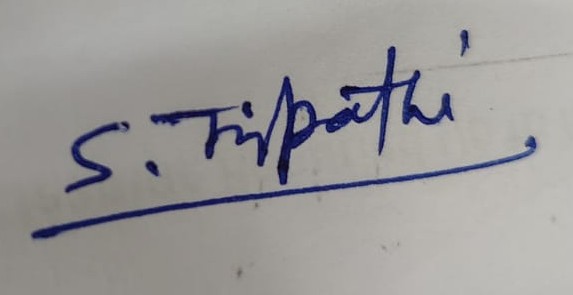 S. Tripathi